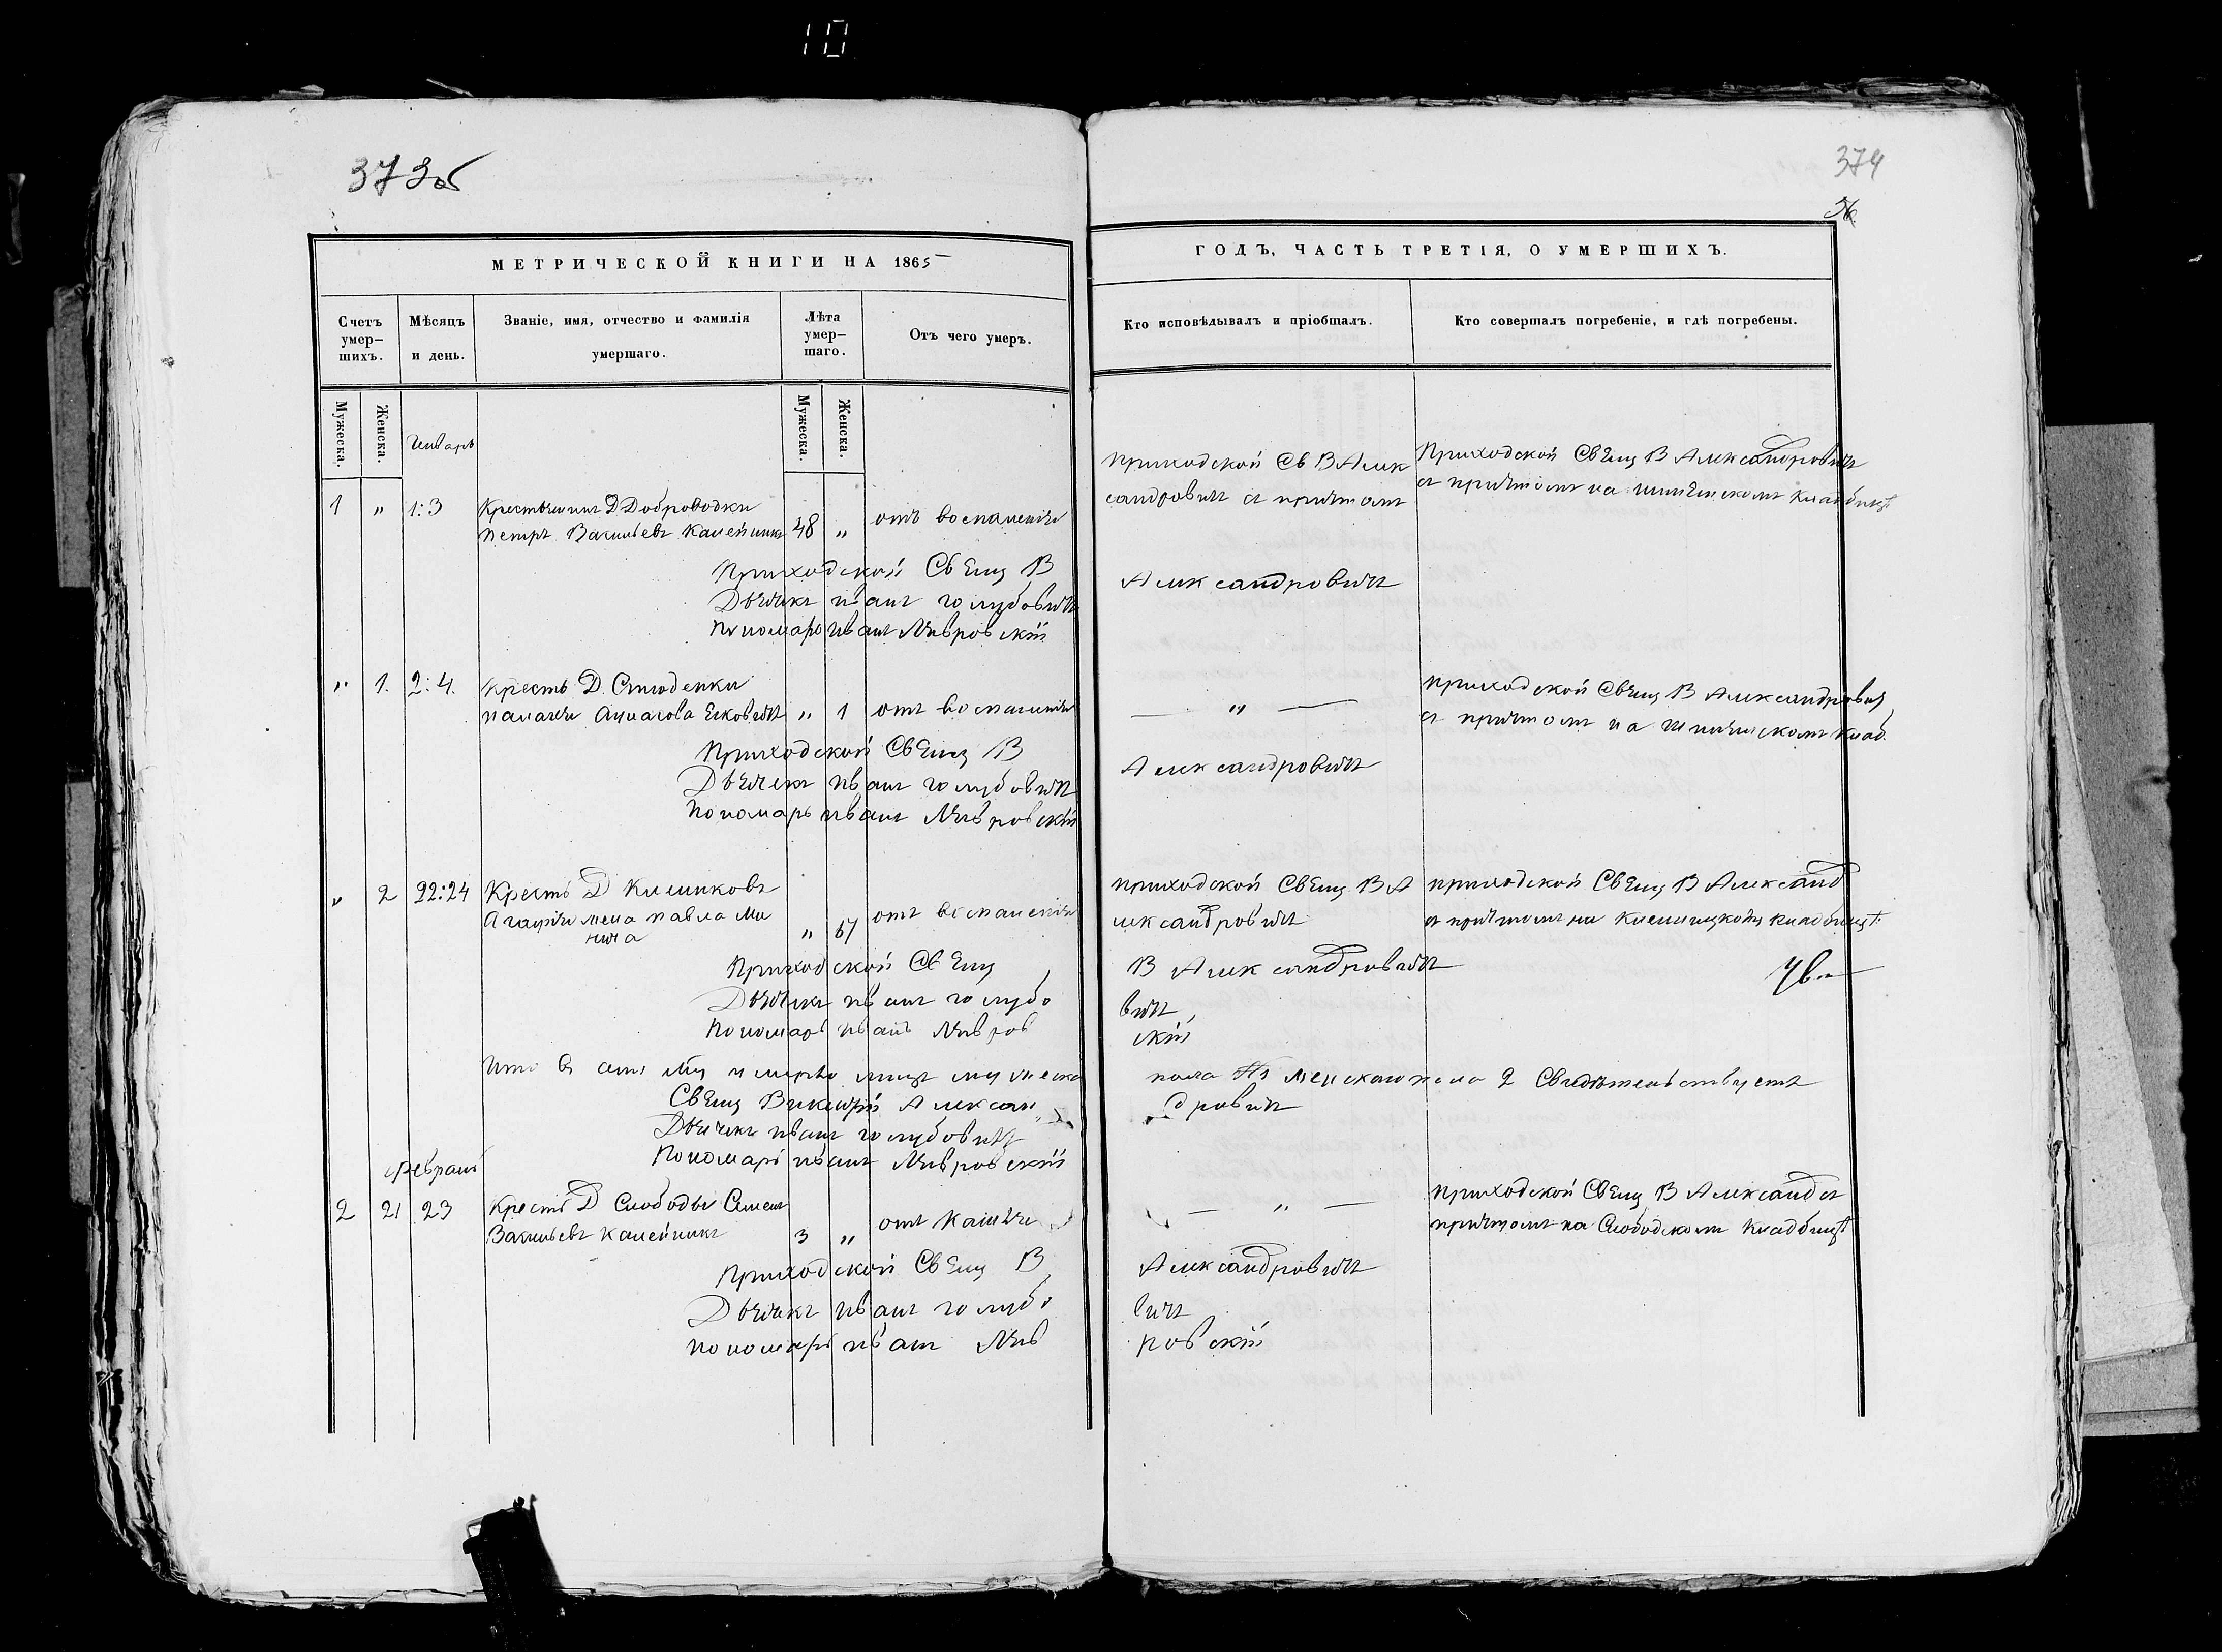 10
373об
374
МЕТРИЧЕСКОЙ КНИГИ НА 1865
ГОДЪ, ЧАСТЬ ТРЕТІЯ, О УМЕРШИХЪ.
Счетъ умер-шихъ.
Мѣсяцъ и день.
Званіе, имя, отчество и фамилія умершаго.
Лѣта умер-шаго.
Отъ чего умеръ.
Кто исповѣдывалъ и пріобщалъ.
Кто совершалъ погребеніе, и гдѣ погребены.
Мужеска.
Женска.
Мужеска.
Женска.
Январь
1 " 1:3 Крестьянинъ Д Добрѳводки
Петръ Васильевъ Калейникъ 48 " отъ воспаленія
Приходской Св В Алек
сандровичъ съ причтомъ
Приходской Свящ В Александровичъ
съ причтомъ на кладбищѣ
Приходской Свящ В Александровичъ
Дьячекъ Иванъ Голубовичъ
Пономарь Иванъ Лавровскій
" 1. 2:4. Кресть. Д. Студенки
" 1 отъ воспаленія
— " —
Приходской Свящ В Александрович
съ причтомъ на клад.
Приходской Свящ В Александровичъ
Дьячекъ Иванъ Голубовичъ
Пономарь Иванъ Лавровскій
" 2 22:24 Кресть Д
Агафія жена Павла
" 67 отъ воспаленія
Приходской Свящ В А
лександровичъ
Приходской Свящ В Александ
съ причтомъ на кладбищѣ
Приходской Свящ В Александровичъ
Дьячекъ Иванъ Голубовичъ
Пономарь Иванъ Лавровскій
Что въ семъ умерло лицъ мужеска пола женскаго пола 2 Свидѣтельствуетъ
Свящ Викентій Александровичъ
Дьячекъ Иванъ Голубовичъ
Пономарь Иванъ Лавровскій
Февраль
2 21 23 Кресть Д Слободы Семенъ
Васильевъ Калейникъ 3 " отъ кашля
— " —
Приходской Свящ В Александ съ
причтомъ на Слободскомъ кладбищѣ
Приходской Свящ В Александровичъ
Дьячекъ Иванъ Голубовичъ
Пономарь Иванъ Лавровскій